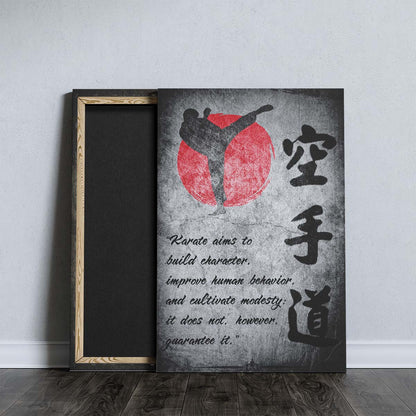 空手道
"Karate aims to
build character,
improve human behavior,
and cultivate modesty;
it does not, however,
guarantee it."